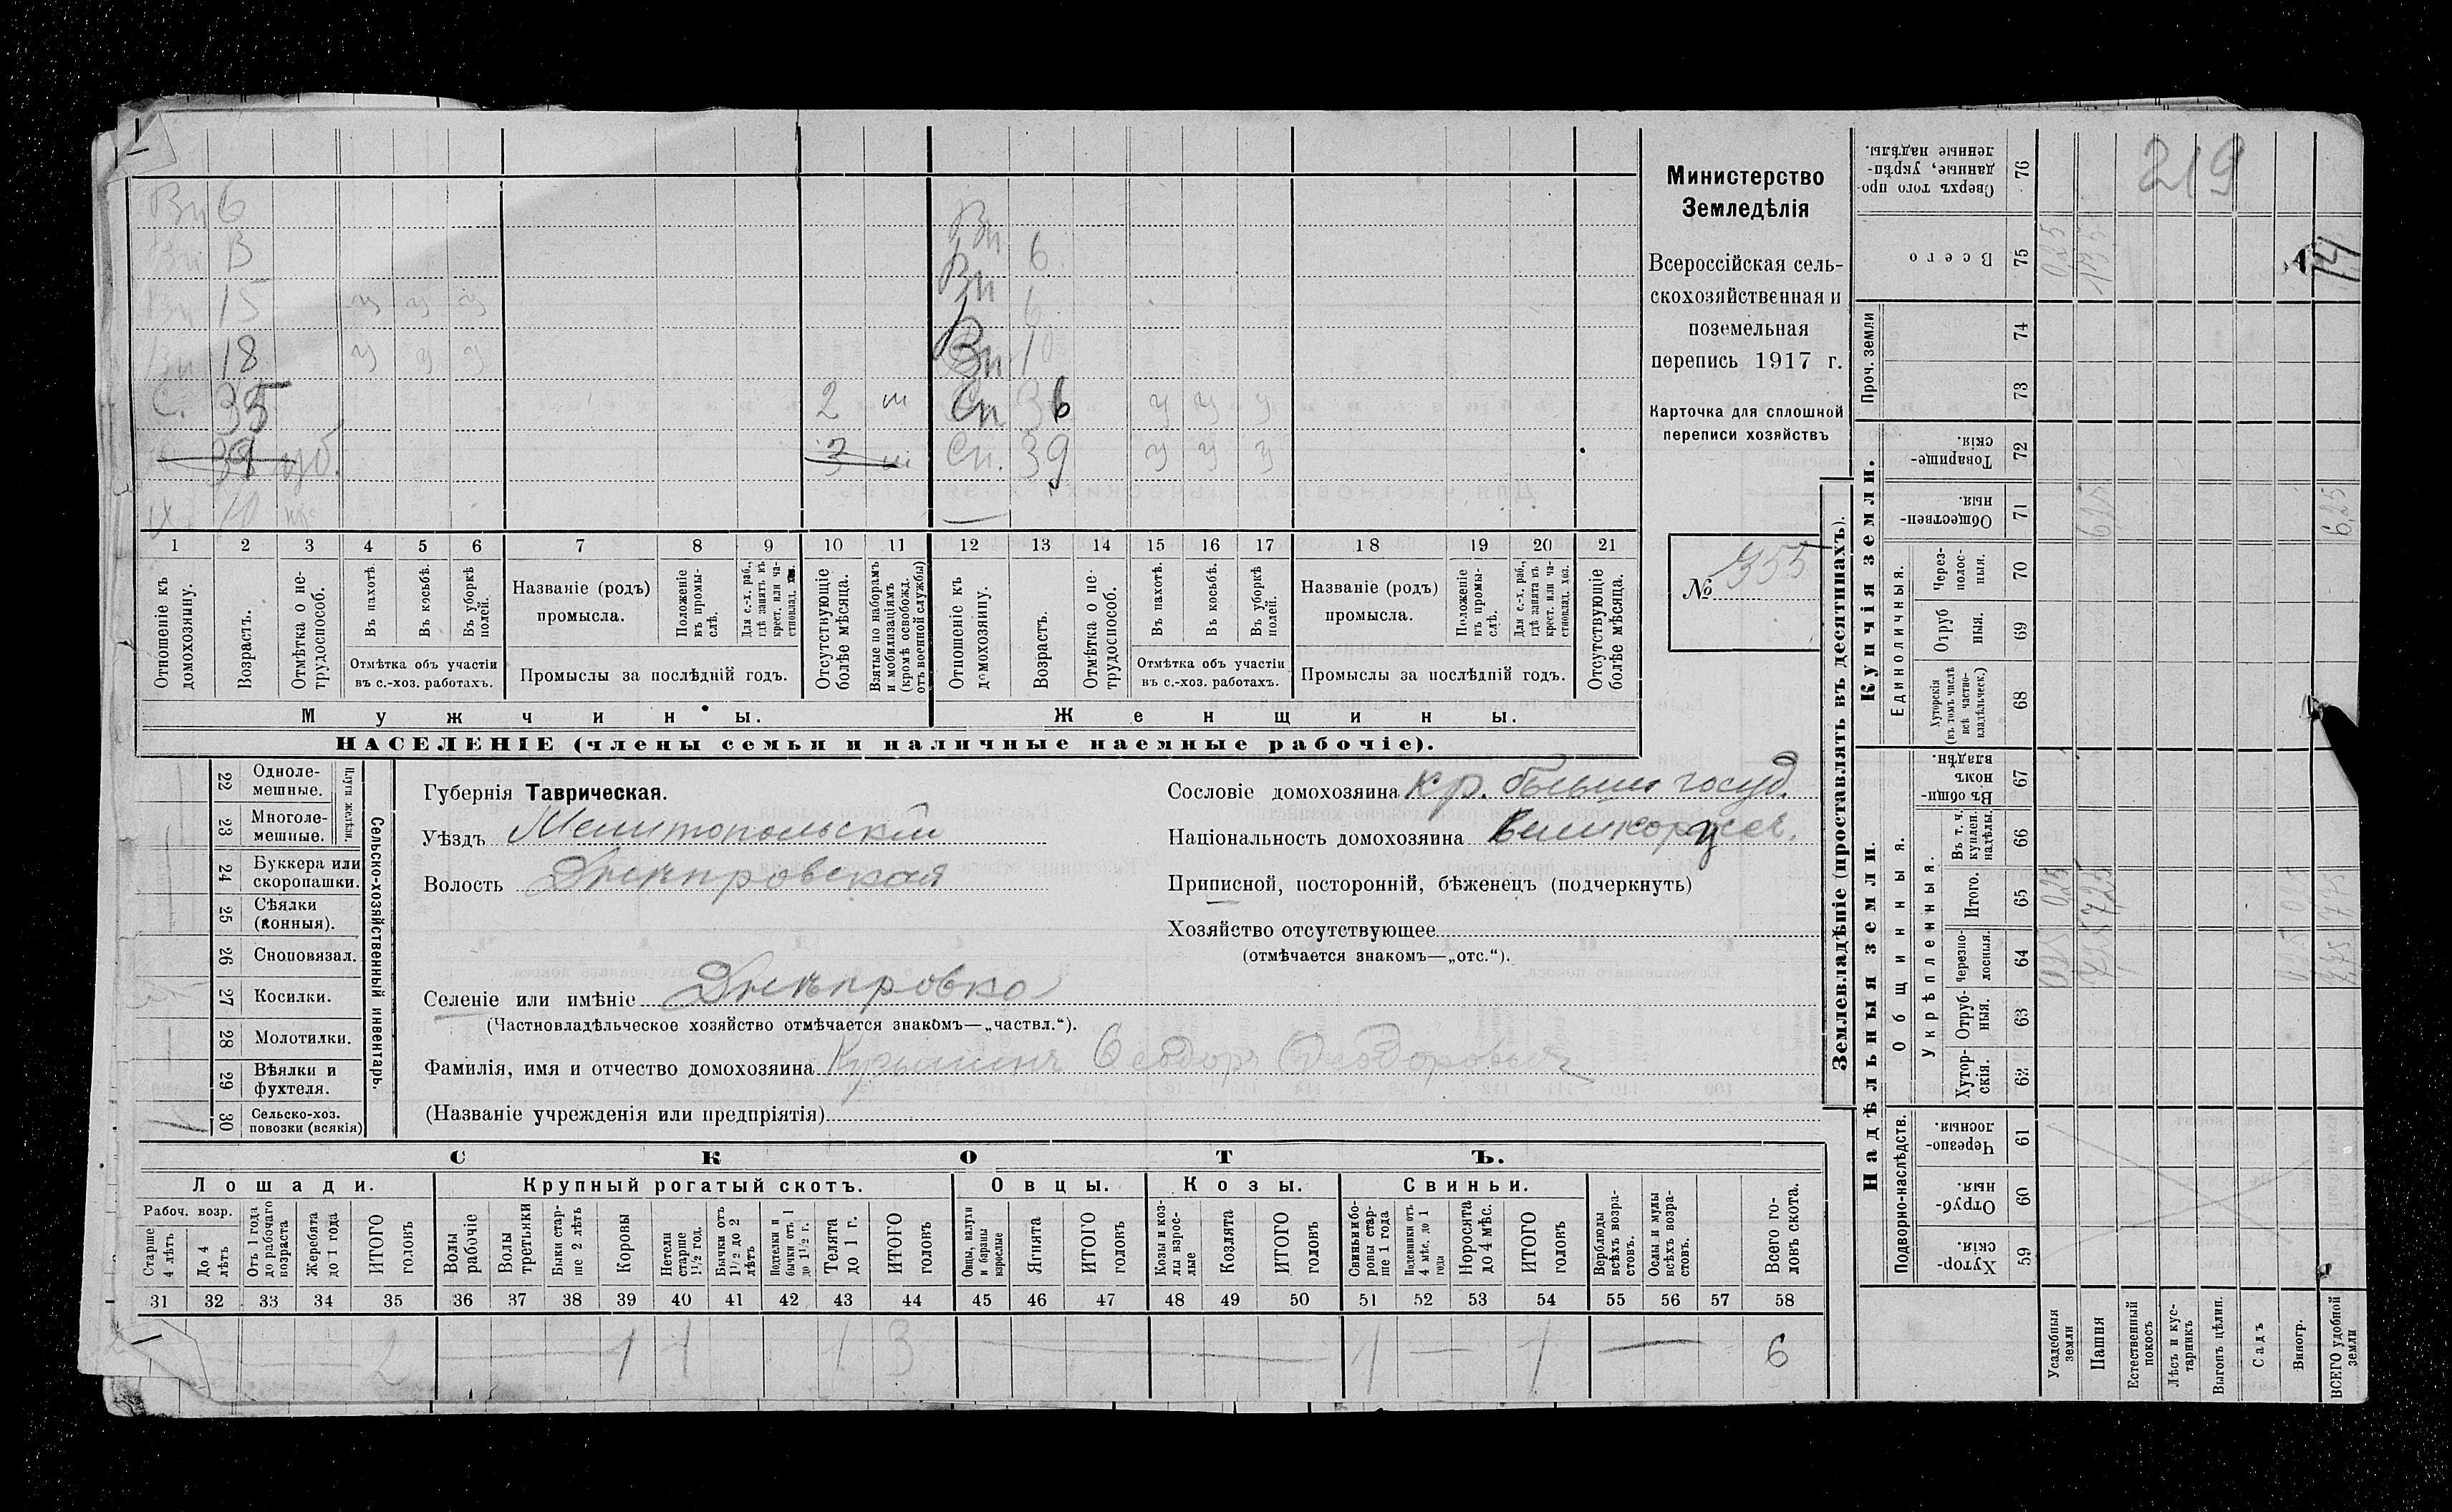 219
Министерство
Земледѣлія
Всероссійская сель-
скохозяйственная и
поземельная
перепись 1917 г.
Карточка для сплошной
переписи хозяйствъ
№ 355
Вн 6
Вн В
Вн 15 у у у
Вн 18 у у у
С. 35 2 м
39 3 м
Вн
Вн 6
6
Вн 10
Сн 36 у у у
Сн. 39 у у у
1 2 3 4 5 6 7 8 9 10 11 12 13 14 15 16 17 18 19 20 21
Отношеніе къ домохозяину.
Возрастъ.
Отмѣтка о не-трудоспособ.
Въ пахотѣ.
Въ косьбѣ.
Въ уборкѣ полей.
Отмѣтка объ участіи
въ с.-хоз. работахъ.
Названіе (родъ)
промысла.
Положеніе въ промы-слѣ.
Для с.-х. раб., гдѣ занятъ въ крест. или ча-стновлад. хоз.
Промыслы за послѣдній годъ.
Отсутствующіе болѣе мѣсяца.
Взятые по наборамъ и мобилизаціямъ (кромѣ освобожд. отъ военной службы)
Отношеніе къ домохозяину.
Возрастъ.
Отмѣтка о не-трудоспособ.
Въ пахотѣ.
Въ косьбѣ.
Въ уборкѣ полей.
Отмѣтка объ участіи
въ с.-хоз. работахъ.
Названіе (родъ)
промысла.
Положеніе въ промы-слѣ.
Для с.-х. раб., гдѣ занята въ крест. или ча-стновлад. хоз.
Промыслы за послѣдній годъ.
Отсутствующіе болѣе мѣсяца.
Мужчины.
Женщины.
НАСЕЛЕНІЕ (члены семьи и наличные наемные рабочіе).
22 Одноле-мешные.
23 Многоле-мешные.
Плуги желѣзн.
24 Буккера или скоропашки.
25 Сѣялки (конныя).
26 Сноповязал.
27 Косилки.
28 Молотилки.
29 Вѣялки и фухтеля.
30 Сельско-хоз. повозки (всякія)
Сельско-хозяйственный инвентарь.
Губернія Таврическая.
Уѣздъ Мелитопольскій
Волость Днѣпровская
Сословіе домохозяина кр. бывш. госуд.
Національность домохозяина Великорус.
Приписной, посторонній, бѣженецъ (подчеркнуть)
Хозяйство отсутствующее
(отмѣчается знакомъ—„отс.“).
Селеніе или имѣніе Днѣпровка
(Частновладѣльческое хозяйство отмѣчается знакомъ—„частвл.“).
Фамилія, имя и отчество домохозяина Феодоръ Феодоровъ
(Названіе учрежденія или предпріятія)
СКОТЪ.
Лошади. Крупный рогатый скотъ. Овцы. Козы. Свиньи.
Рабоч. возр.
Старше 4 лѣтъ
До 4 лѣтъ
Отъ 1 года до рабочаго возраста
Жеребята до 1 года
ИТОГО головъ
Волы рабочіе
Волы третьяки
Быки стар-ше 2 лѣтъ
Коровы
Нетели старше 1½ год.
Бычки отъ 1½ до 2 лѣтъ
Подтелки и бычки отъ 1 до 1½ г.
Телята до 1 г.
ИТОГО головъ
Овцы, валухи и бараны взрослые
Ягнята
ИТОГО головъ
Козы и коз-лы взрос-лые
Козлята
ИТОГО головъ
Свиньи и бо-ровы стар-ше 1 года
Подсвинки отъ 4 мѣс. до 1 года
Поросята до 4 мѣс.
ИТОГО головъ
Верблюды всѣхъ возра-стовъ.
Ослы и мулы всѣхъ возра-стовъ.
Всего го-ловъ скота.
31 32 33 34 35 36 37 38 39 40 41 42 43 44 45 46 47 48 49 50 51 52 53 54 55 56 57 58
2 1 1 1 3 — — 1 — 1 — 6
Землевладѣніе (проставлять въ десятинахъ).
Надѣльныя земли.
Купчія земли.
Проч. земли
Подворно-наслѣдств.
Общинныя.
Укрѣпленныя.
Единоличныя.
Сверхъ того про-данные, укрѣп-ленные надѣлы. 76
Всего 75
74
73
Товарище-скія. 72
Обществен-ныя. 71
Через-полос-ныя. 70
Отруб ныя. 69
Хуторскія (въ томъ числѣ всѣ частно-владѣльческ.) 68
Въ общин-номъ владѣн. 67
Въ т. ч. куплен. надѣлы. 66
Итого. 65
Черезпо-лосныя. 64
Отруб-ныя. 63
Хутор-скія. 62
Черезпо-лосныя. 61
Отруб-ныя. 60
Хутор-скія. 59
Усадебныя земли
Пашня
Естественный покосъ
Лѣсъ и кус-тарникъ
Выгонъ цѣлин.
Садъ
Виногр.
ВСЕГО удобной земли
0,25
14
6,25
0,25
7,25
7,75